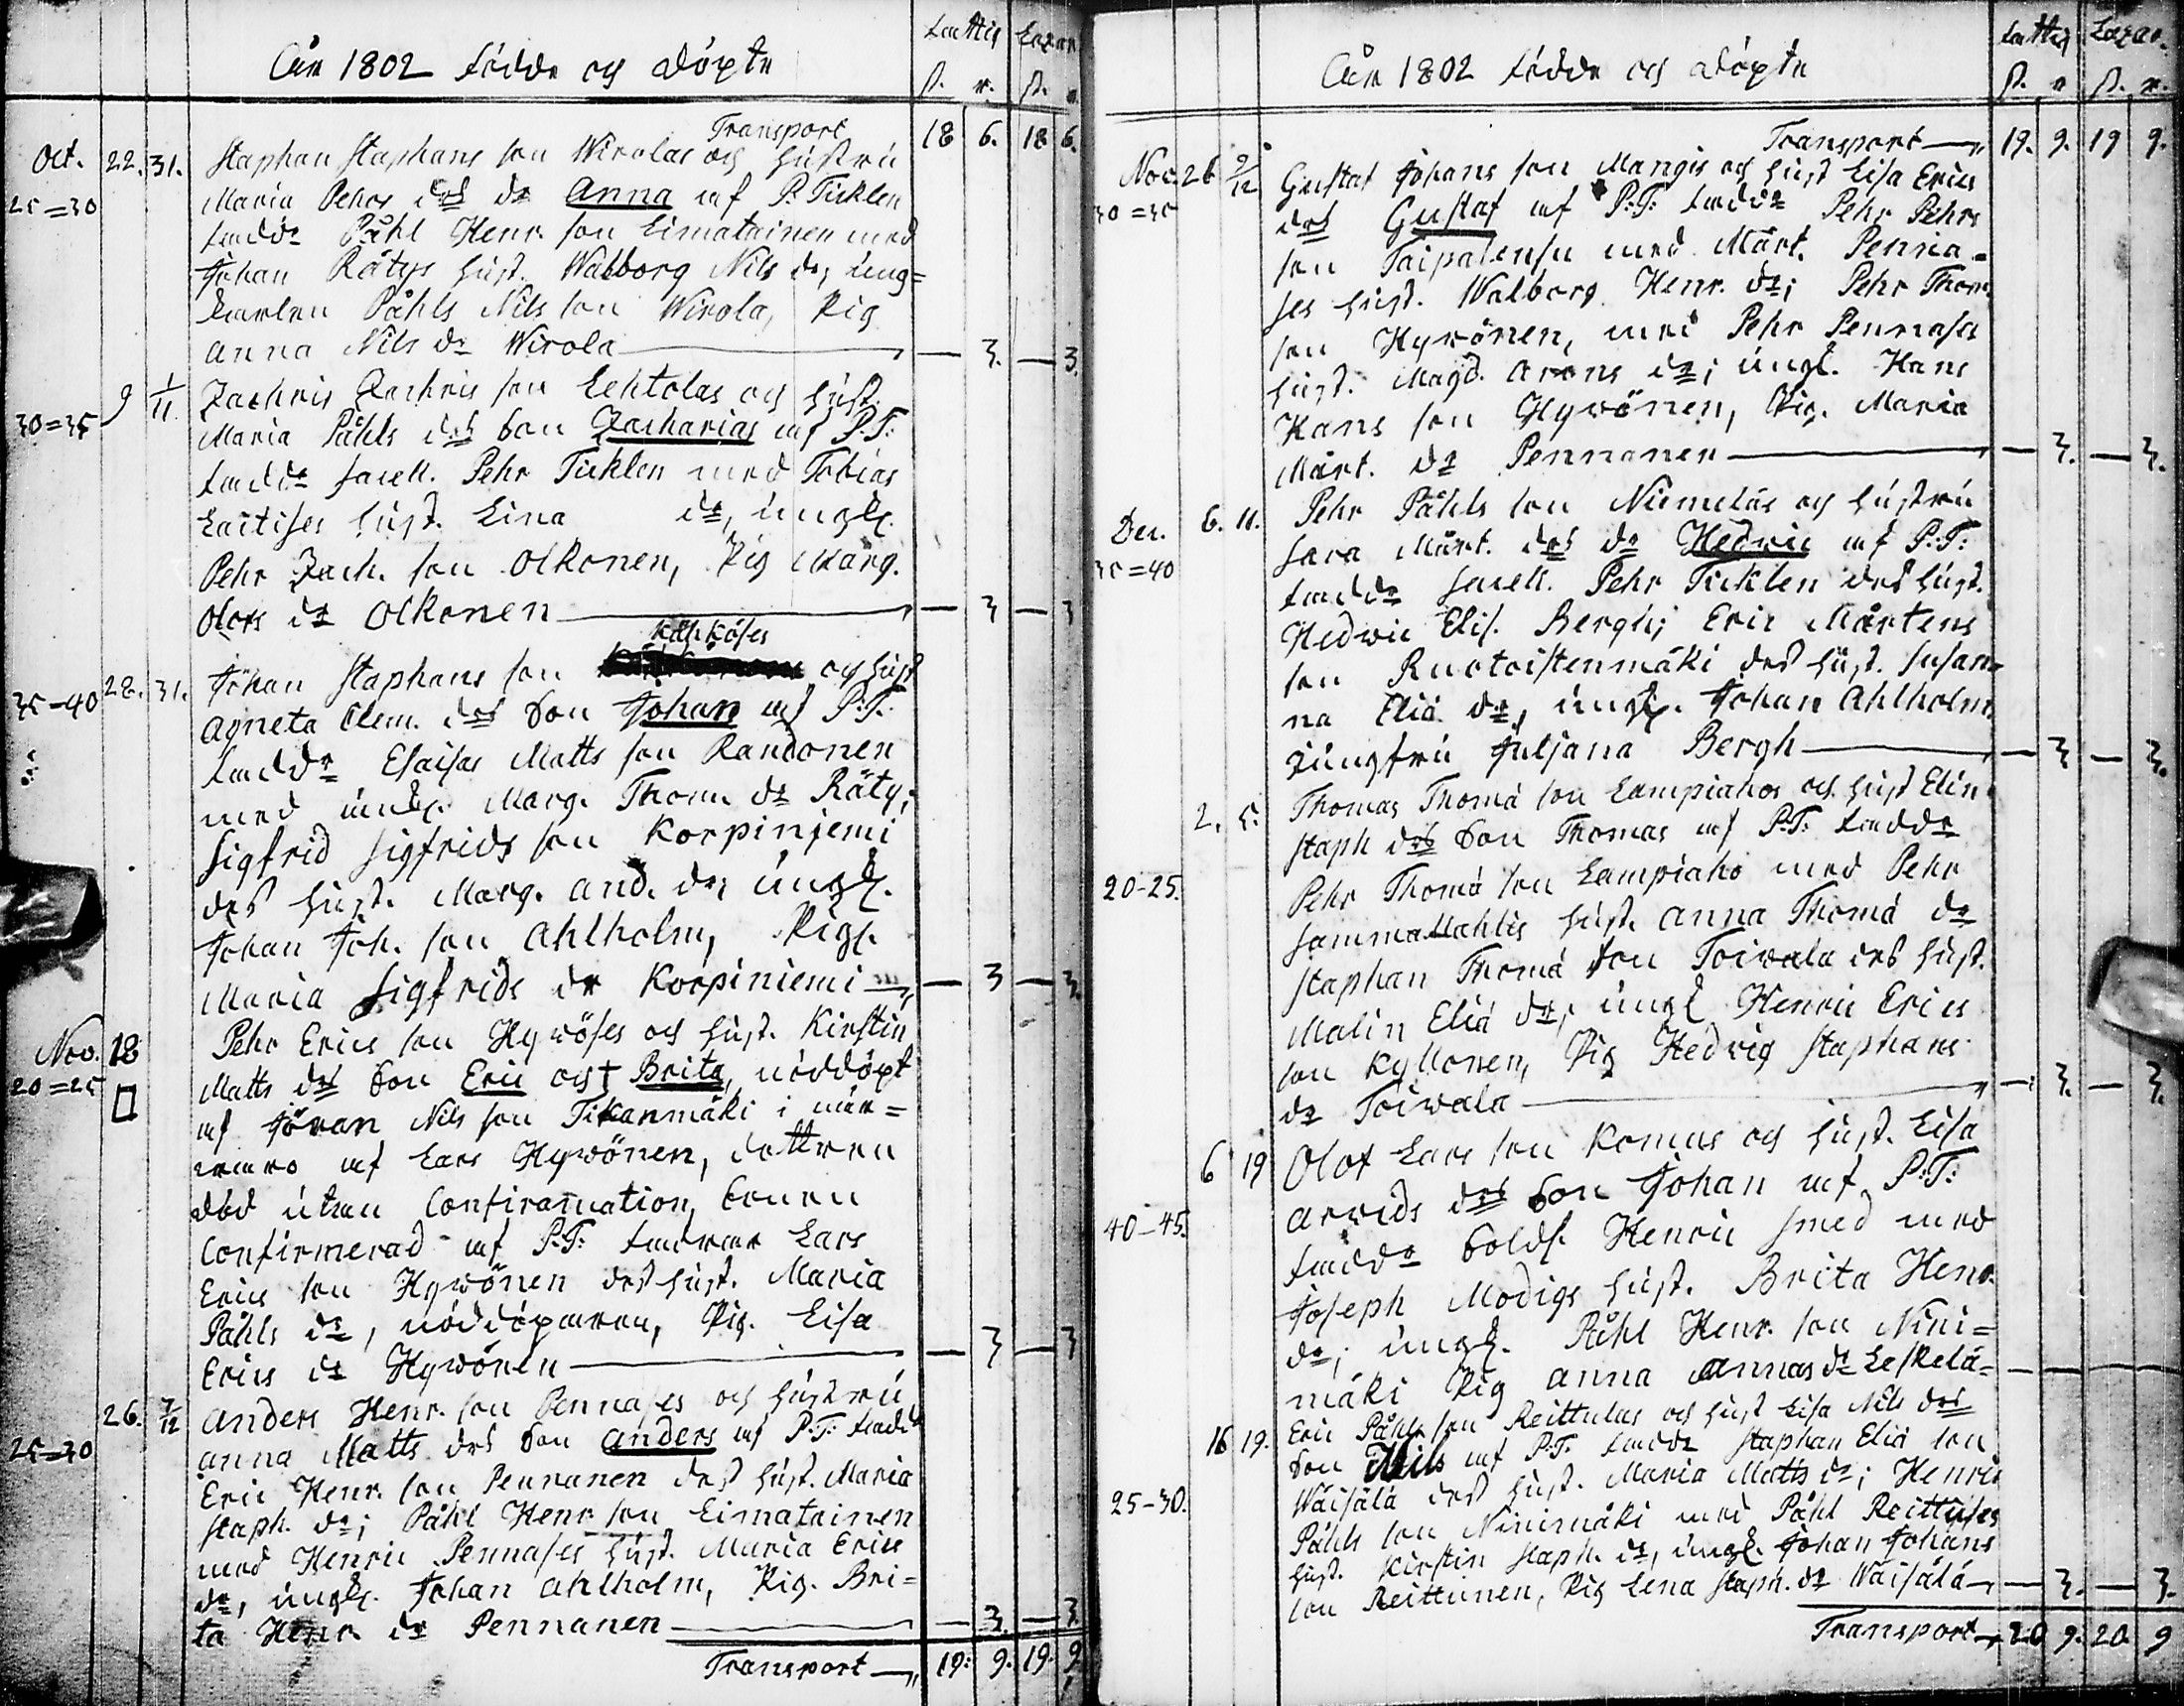 Åår 1802 födde och döpte
Fattig Lazar
ß. r. ß. r.
Transport 18 6. 18 6.
Oct. 22. 31. Staphan Staphans son Wirolas och hustru
25=30 Maria Pehrs des dr Anna af P. Ticklen
Påhl Henr. son Eimatainen med
Johan Rätys hust. Walborg Nils dr; ung=
karlen Påhls Nils son Wirola, Pig
Anna Nils dr Wirola — 3. — 3.
9 1/11 Zachris Zachris son Lehtolas och hust.
30=35 Maria Påhls des son Zacharias af P.T:
Pehr Ticklen med Tobias
Laitises hust. Lina dr, ungk.
Pehr Zach. son Olkonen, Pig Marg.
Olofs dr Olkonen — 3 — 3
28. 31. Johan Staphans son och hust
35-40 Agneta Clem. des son Johan af P.T:
Esaias Matts son Randonen
med Marg. Thom. dr Räty;
Sigfrid Sigfrids son Korpinjemi
des hust. Marg. And. dr; ungk.
Johan Joh. son Ahlholm, Pig.
Maria Sigfrids dr Korpiniemi — 3 — 3.
Nov. 18 Pehr Erics son Hywöses och hust. Kirstin
20=25 Matts des son Eric och † Brita, nöddöpt
af Jöran Nils son Tikanmäki i när=
waro af Lars Hywönen, dottren
död utan Confirmation, sonen
Confirmerad af P.T: Lars
Erics son Hywönen des hust. Maria
Påhls dr, nöddöparen, Pig. Lisa
Erics dr Hywönen — 3 — 3
26. 7/12 Anders Henr. son Pennases och hustru
25=30 Anna Matts des son Anders af P.T:
Eric Henr. son Pennanen des hust. Maria
Staph. dr; Påhl Henr. son Eimatainen
med Henric Pennases hust. Maria Erics
dr, ungk. Johan Ahlholm, Pig. Bri=
ta Henr. dr Pennanen — 3. — 3.
Transport 19: 9. 19. 9
Åår 1802 födde och döpte
Fattig Lazar.
ß. r ß. r.
Transport 19. 9. 19 9.
Nov. 26 9/12 Gustaf Johans son Mangis och hust Lisa Erics
30=35 des Gustaf af P:T: Pehr Pehrs
son Taipalensu med Mårt. Penna=
ses hust. Walborg Henr. dr; Pehr Thom.
son Hywönen, med Pehr Pennases
hust. Magd. Arons dr; ungk. Hans
Hans son Hywönen, Pig. Maria
Mårt. dr Pennanen — 3. — 3.
Dec. 6. 11. Pehr Påhls son Niemeläs och hustru
35=40 Sara Mårt. des dr Hedvic af P:T:
Pehr Ticklen des hust.
Hedvic Elis. Bergh; Eric Mårtens
son Ruotoistenmäki des hust. Susan=
na Eliä dr, ungk. Johan Ahlholm
jungfru Juljana Bergh — 3 — 3.
2. 5. Thomas Thomä son Lampiahos och hust Elin
Staph des son Thomas af P:T:
20-25. Pehr Thomä son Lampiaho med Pehr
hust. Anna Thomä dr
Staphan Thomä son Toiwala des hust.
Malin Eliä dr, ungk Henric Erics
son Kyllonen, Pig Hedvig Staphans
dr Toiwala — 3. — 3.
6 19 Olof Lars son Komus och hust. Lisa
Arvids des son Johan af P:T:
40-45. Sold. Henric Smed med
Joseph Modigs hust. Brita Henr.
dr; ungk. Påhl Henr. son Nini=
mäki Pig Anna Annas dr Leskelä
16 19. Eric Påhls son Reittulas och hust Lisa Nils des
son Nils af P:T: Staphan Eliä son
25-30. Wäisälä des hust. Maria Matts dr; Henric
Påhls son Ninimäki med Påhl Reittuses
hust. Kirstin Staph. dr, ungk. Johan Johans
son Reittunen, Pig Lena Staph. dr Wäisälä — 3. — 3.
Transport 20 9. 20. 9